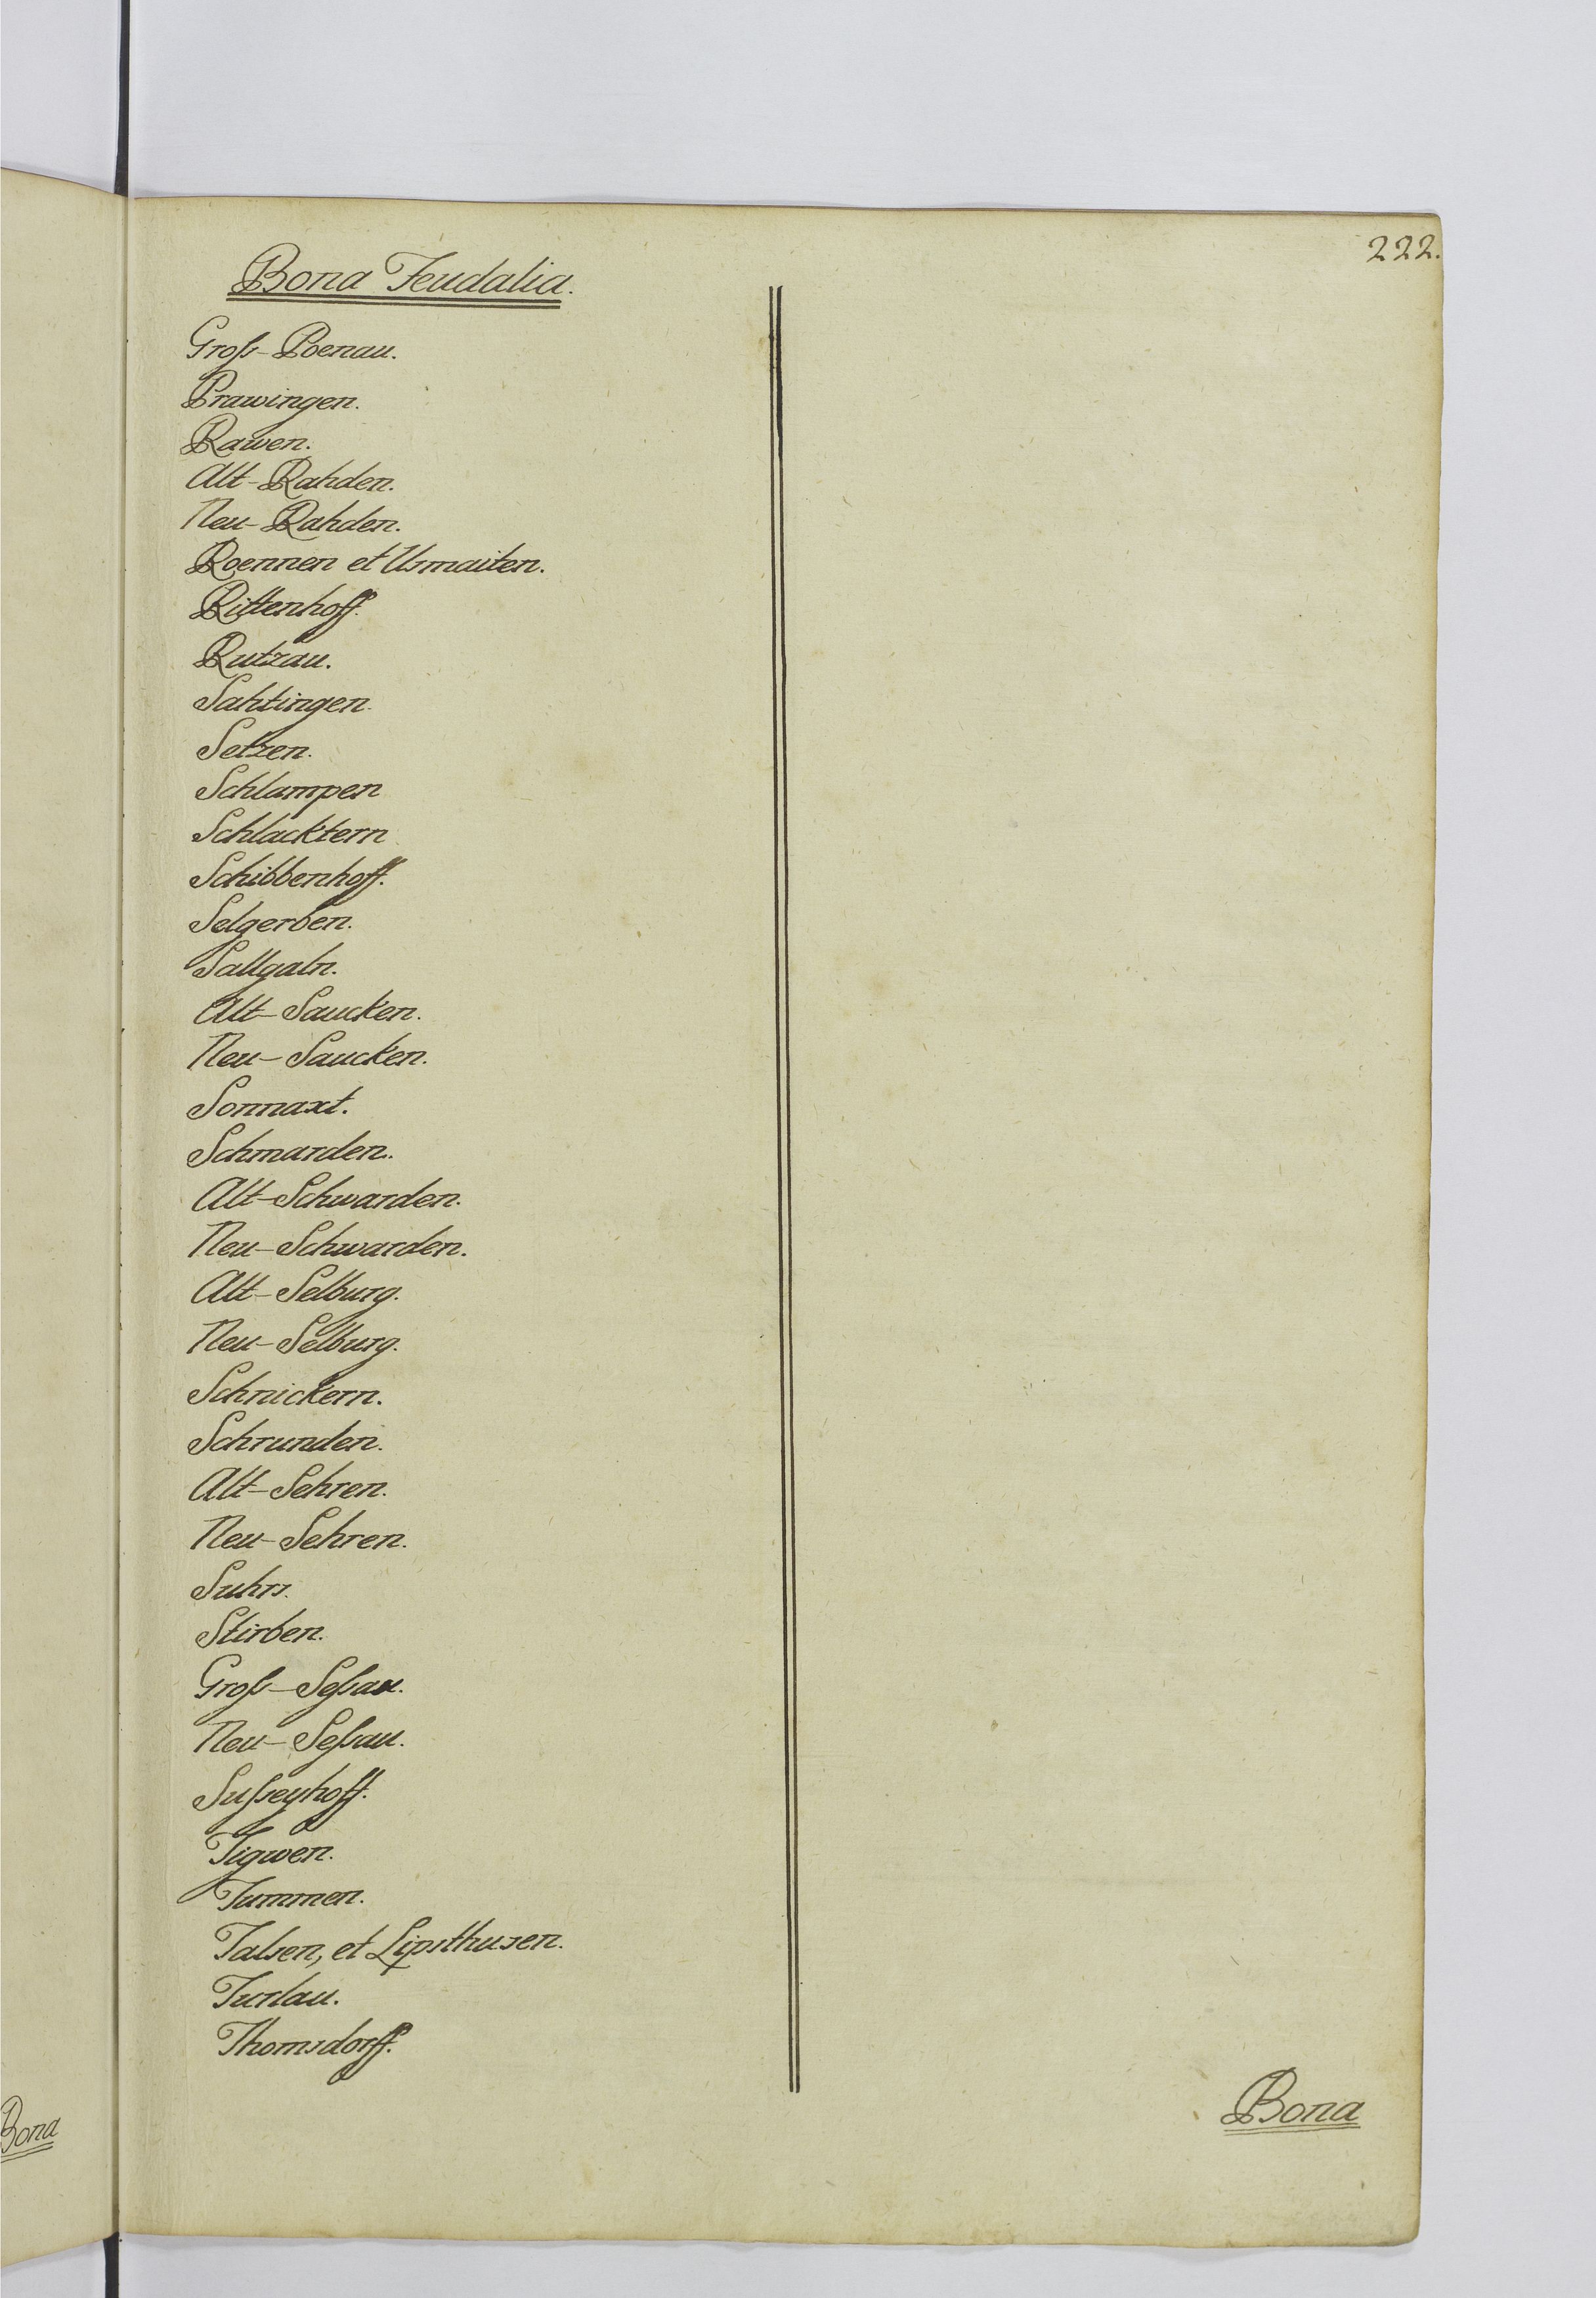 222.
Bona Feudalia.
Groß-Poenau.
Prawingen.
Rawen.
Alt-Rahden.
Neu-Rahden.
Roennen et Usmaiten.
Rittenhoff.
Rutzau.
Sahtingen.
Setzen.
Schlampen
Schlacktern
Schibbenhoff.
Selgerben.
Sallgaln.
Alt-Saucken.
Neu-Saucken.
Sonnaxt.
Schmarden.
Alt-Schwarden.
Neu-Schwarden.
Alt-Selburg.
Neu-Selburg.
Schnickern.
Schrunden.
Alt-Sehren.
Neu-Sehren.
Suhrs.
Stirben.
Groß-Seßau.
Neu-Seßau.
Sußeyhoff.
Tigwen.
Tummen.
Talsen, et Lipsthusen.
Turlau.
Thomsdorff.
Bona
Bona